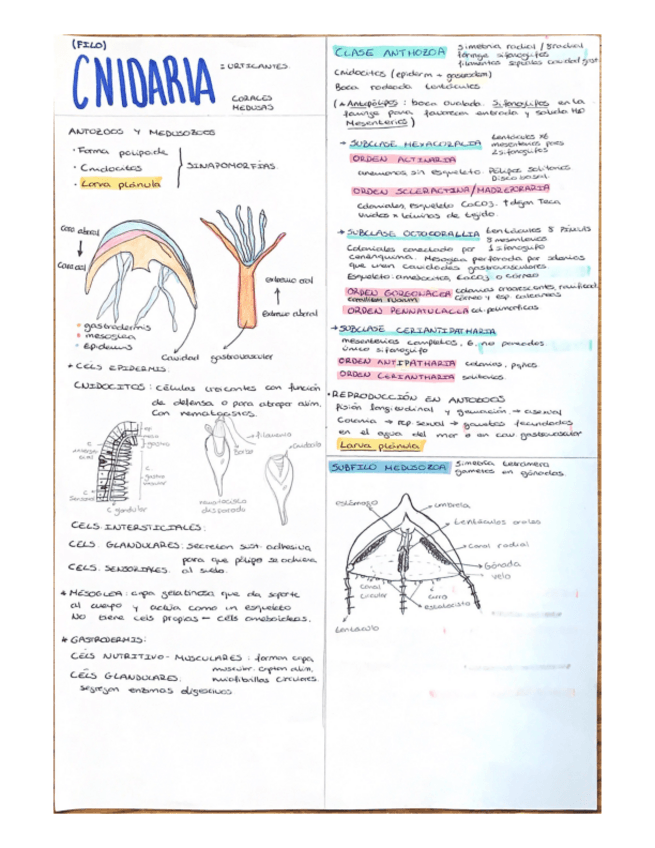 (FILO)
CNIDARIA : URTICANTES.
CORALES
MEDUSAS
ANTOZOOS Y MEDUSOZOOS
· Forma polipoide
· Cnidocitos
· Larva plánula
SINAPOMORFÍAS.
Cara aboral
Cara oral
extremo oral
Extremo aboral
gastrodermis
mesoglea
Epidermis
Cavidad gastrovascular
* CELS EPIDERMIS:
CNIDOCITOS: células urticantes con función
de defensa o para atrapar alim.
Con nematocistos.
filamento
Barbas
nematocisto
disparado
C glandular
C sensorial
CELS INTERSTICIALES:
CELS. GLANDULARES: secretan sust. adhesiva
para que pólipo se adhiera
CELS. SENSORIALES. al suelo.
* MESOGLEA: capa gelatinosa que da soporte
al cuerpo y actúa como un esqueleto
No tiene cels propias — cels ameboideas.
* GASTRODERMIS:
CELS NUTRITIVO-MUSCULARES: forman capa
muscular. captan alim.
miofibrillas circulares.
CELS GLANDULARES:
segregan enzimas digestivos.
CLASE ANTHOZOA
Simetría radial / Birradial
faringe sifonoglifos
filamentos septales cavidad gast
Cnidocitos (epiderm + gastroderm)
Boca rodeada tentáculos.
(* Antopólipos: boca ovalada. Sifonoglifos en la
faringe para favorecer entrada y salida H2O
Mesenterios)
→ SUBCLASE HEXACORALIA
tentáculos x6
mesenterios pares
2 sifonoglifos
ORDEN ACTINARIA
anémonas sin esqueleto. Pólipos solitarios
Disco basal.
ORDEN SCLERACTINA/MADREPORARIA
Coloniales, esqueleto CaCO3. † dejan Teca
Unidos x láminas de tejido.
→ SUBCLASE OCTOCORALLIA
tentáculos 8 Pínnuls
8 mesenterios
1 sifonoglifo
Coloniales conectado por
cenénquima. Mesoglea perforada por solenios
que unen cavidades gastrovasculares
Esqueleto: amebocitos, CaCO3 o córneo
ORDEN GORGONACEA
colonias arborescentes, ramificad
córneo y esp. calcáreas
corallium rubrum
ORDEN PENNATULACEA col. plumorficas
→ SUBCLASE CERIANTIPATHARIA
mesenterios completos, 6, no pareados.
único sifonoglifo
ORDEN ANTIPATHARIA colonias,
ORDEN CERIANTHARIA solitarios.
· REPRODUCCIÓN EN ANTOZOOS
fisión longitudinal y gemación → asexual
Colonia → rep sexual → gametos fecundados
en el agua del mar o en cav gastrovascular
Larva plánula
SUBFILO MEDUSOZOA
Simetría tetrámera
gametos en gónadas.
estómago
umbrela
tentáculos orales
Canal radial
Gónada
velo
Canal
circular
Cirro
estatocisto
tentáculo